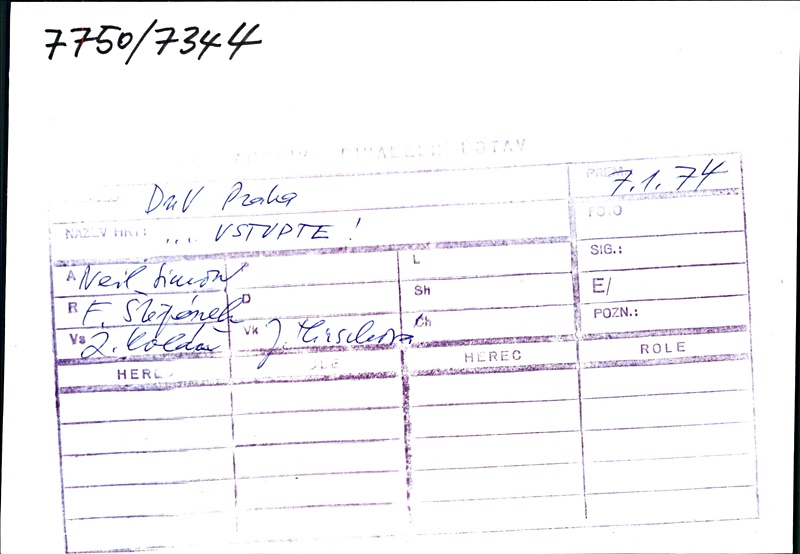 7750/7344
DIVADELNÍ ÚSTAV
DnV Praha
PREM. 7.1.74
NÁZEV HRY: ... VSTUPTE!
FOTO
A Neil Simon
L
SIG.:
R F. Štěpánek
D
Sh
E/
Vs Z. Kolář
Vk J.
Ch
POZN.:
HEREC ROLE HEREC ROLE